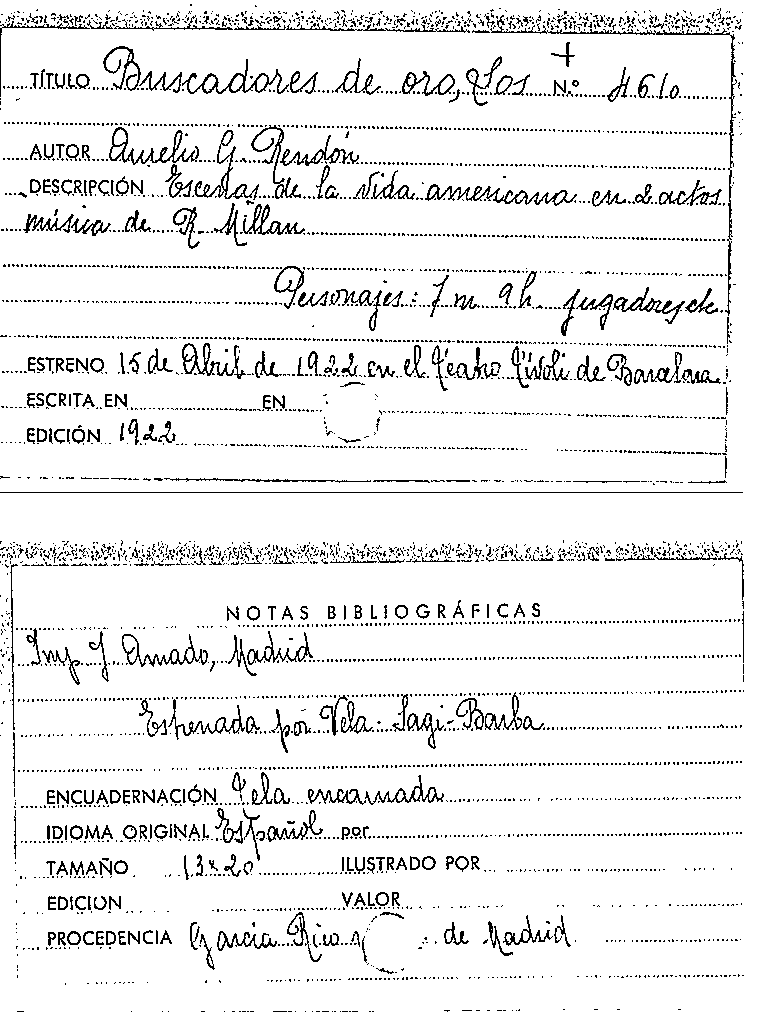 +
TÍTULO Buscadores de oro, Los N.º 4610
AUTOR Aurelio G. Rendón
DESCRIPCIÓN Escenas de la vida americana en 2 actos
música de R. Millan
Personajes: 7 m 9 h. jugadores, etc.
ESTRENO 15 de Abril de 1922 en el Teatro Tívoli de Barcelona
ESCRITA EN EN
EDICIÓN 1922
NOTAS BIBLIOGRÁFICAS
Imp J. Amado, Madrid
Estrenada por Vela-Sagi-Barba
ENCUADERNACIÓN Tela encarnada
IDIOMA ORIGINAL Español por
TAMAÑO 13 x 20 ILUSTRADO POR
EDICION VALOR
PROCEDENCIA Garcia Rico de Madrid